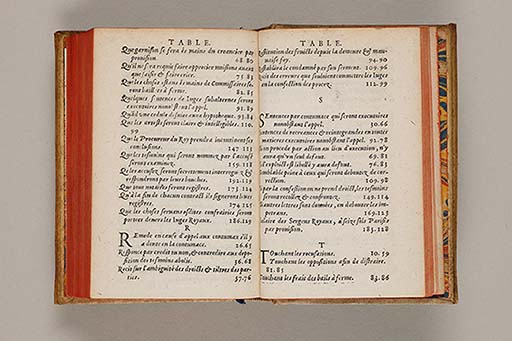 TABLE.
Que garnison se fera de mains du creancier par
provision. 68.80
Qu'il ne sera requis faire apprecier
saisir & faire crier. 75.83
Que les choses estans de mains de Commissaire se-
ront baill à ferme. 81.85
Quelques sentences de Iuges subalternes seront
executoires nonobstant l'appel. 91.89
a hypotheque. 93.84
Que les arrests seront clairs & intelligibles. 110.
99
Que le Procureur du Roy prendra
conclusions. 147.111
Que les tesmoins qui seront nommez par l'accusé
seront examinez. 159.118
Que les accusez seront secretement interroguez &
respondront par leurs bouches. 192.119
Que tous notaires seront registres. 173.124
Qu'à la fin de chacun contract ils signeront leurs
registres. 174.125
Que les choses seront
portees devers les Iuges Royaux. 186.129
R
Remede en cause d'appel aux contumax s'il y
a dont en la contumace. 26.65
Response par credit ou non, & contredire aux depo-
sition des tesmoins abolie. 36.68
Recit sur l'ambiguité des droicts & tiltres des par-
ties. 57.76
TABLE.
Restitution des fruicts depuis la demeure & mau-
vaise foy. 94.90
le condamné par son serment. 109.96
des erreurs que souloient commettre les Iuges
en la confection des procez. 112.99
S
Sentences par contumace qui seront executoires
nonobstant l'appel. 30.66
Sentences de recreances & reintegrandes en toutes
matieres executoires nonobstant l'appel. 91.78
procede par action au lieu d'execution, n'y
aura qu'un seul defaut. 69.81
l'exploict est libellé y aura defaut. 76.83
Semblable peine à ceux qui seront deboutez de cor-
rection. 109.98
par la confession ne prend droict, les tesmoins
seront recollez & confrontez. 149.114
autres lettres sans dans les, en deboutez les impe-
trans. 169.123
des Sergens Royaux, à seize sols Parisis
par provision, 185.128
T
Touchant les recusations. 10.59
Touchant les oppositions afin de distraire.
81.85
Touchant les fraiz des baills à ferme. 83.86